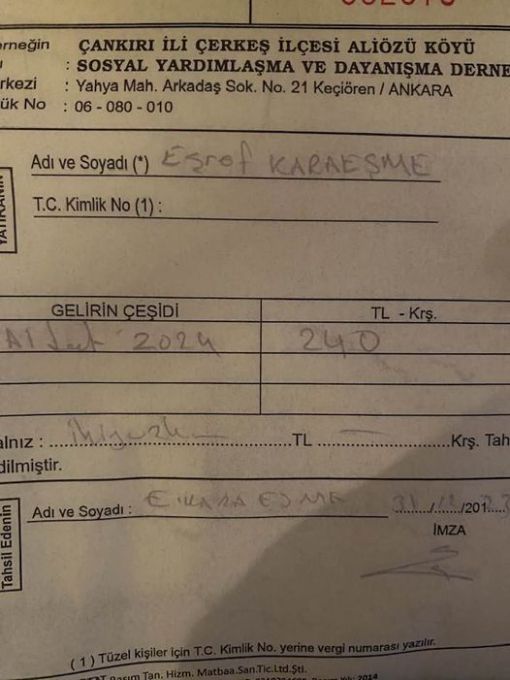 erneğin ÇANKIRI İLİ ÇERKEŞ İLÇESİ ALİÖZÜ KÖYÜ
ı : SOSYAL YARDIMLAŞMA VE DAYANIŞMA DERNE
rkezi : Yahya Mah. Arkadaş Sok. No. 21 Keçiören / ANKARA
ük No : 06 - 080 - 010
YATIRANIN
Adı ve Soyadı (*) Eşref KARAEŞME
T.C. Kimlik No (1) :
GELİRİN ÇEŞİDİ TL - Krş.
Aidat 2024 240
alnız : TL Krş. Tah
dilmiştir.
Tahsil Edenin
Adı ve Soyadı : E. KARAEŞME 31/12/201
İMZA
( 1 ) Tüzel kişiler için T.C. Kimlik No. yerine vergi numarası yazılır.
Tan. Hizm. Matbaa.San.Tic.Ltd.Şti.
2014